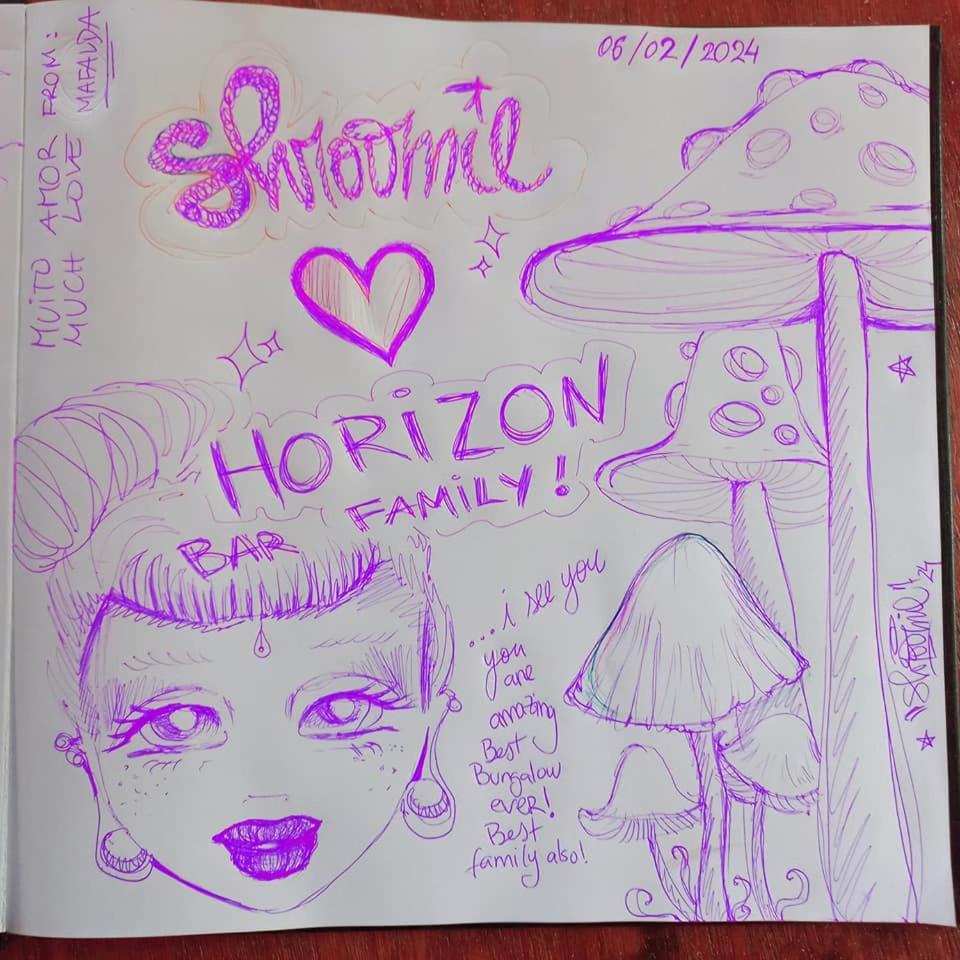 06/02/2024
MUITO AMOR FROM:
MUCH LOVE MAFALDA
Shroomie
HORIZON
BAR FAMILY!
...i see you
you
are
amazing
Best
Bungalow
ever!
Best
family also!
Shroomie! '24